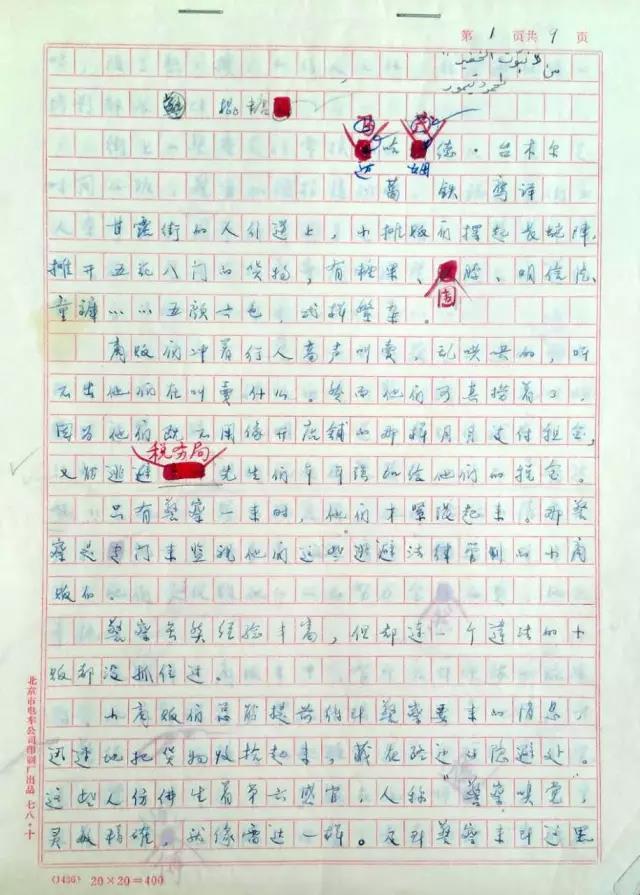 第 1 页共 9 页
من "نبوت الخفير"
لمحمود تيمور
警棍糖
马哈 茂德·台木尔
葛 铁 鹰 译
甘露街的人行道上，小摊贩们摆起长蛇阵，
摊开五花八门的货物，有糖果、围脖、明信片、
童裤……五颜六色，式样繁杂。
商贩们冲着行人高声叫卖，乱哄哄的，听
不出他们在叫卖什么。然而他们可真捞着了，
因为他们既不用像开店铺的那样月月支付租金，
又能逃避税务局先生们年年强加给他们的税金。
只有警察一来时，他们才紧张起来。那警
察是专门来监视他们这些逃避法律管制的小商
贩的。
警察虽然经验丰富，但却连一个违法的小
贩都没抓住过。
小商贩们总能提前得到警察要来的消息，
迅速地把货物收拾起来，藏在路边的隐避处。
这些人仿佛生着第六感官，人称"警察嗅觉"，
灵敏精确，就像雷达一样。及到警察来到这里
北京市电车公司印刷厂出品 七八·十
(1486) 20×20=400